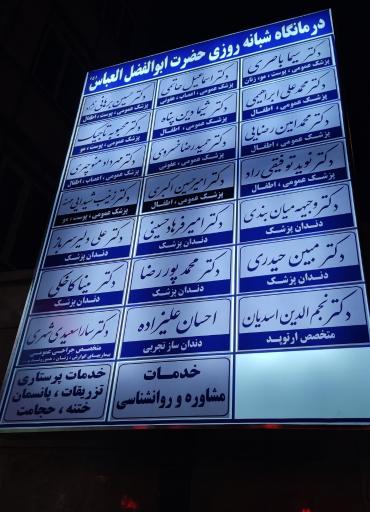 درمانگاه شبانه روزی حضرت ابوالفضل العباس (ع)
دکتر سیما باصری
پزشک عمومی ، پوست ، مو ، زنان
دکتر اسماعیل حاتمی
پزشک عمومی ، اعصاب ، عفونی
دکتر حسین برهانی
پزشک عمومی ، پوست ، اطفال
دکتر محمد علی ابراهیمی
پزشک عمومی ، اطفال
دکتر شیما دین پناه
پزشک عمومی ، اطفال
دکتر محبوبه تاجیک
پزشک عمومی ، پوست ، مو
دکتر محمد امین رضایی
پزشک عمومی ، اطفال
دکتر حمید رضا خسروی
پزشک عمومی ، عفونی
دکتر مهرداد منوچهری
پزشک عمومی ، اعصاب ، اطفال
دکتر نوید توفیقی راد
پزشک عمومی ، اطفال
دکتر امیرحسین اکبری
پزشک عمومی ، اطفال
دکتر زینب
پزشک عمومی ، پوست ، مو
دکتر وجیهه میان بندی
دندان پزشک
دکتر امیر فرهاد حسینی
دندان پزشک
دکتر علی دلیر سرباز
دندان پزشک
دکتر مبین حیدری
دندان پزشک
دکتر محمد پور رضا
دندان پزشک
دکتر مینا کاخکی
دندان پزشک
دکتر نجم الدین اسدیان
متخصص ارتوپد
احسان علیزاده
دندان ساز تجربی
دکتر سارا سعیدی
متخصص جراحی عمومی
خدمات
مشاوره و روانشناسی
خدمات پرستاری
تزریقات ، پانسمان
ختنه ، حجامت